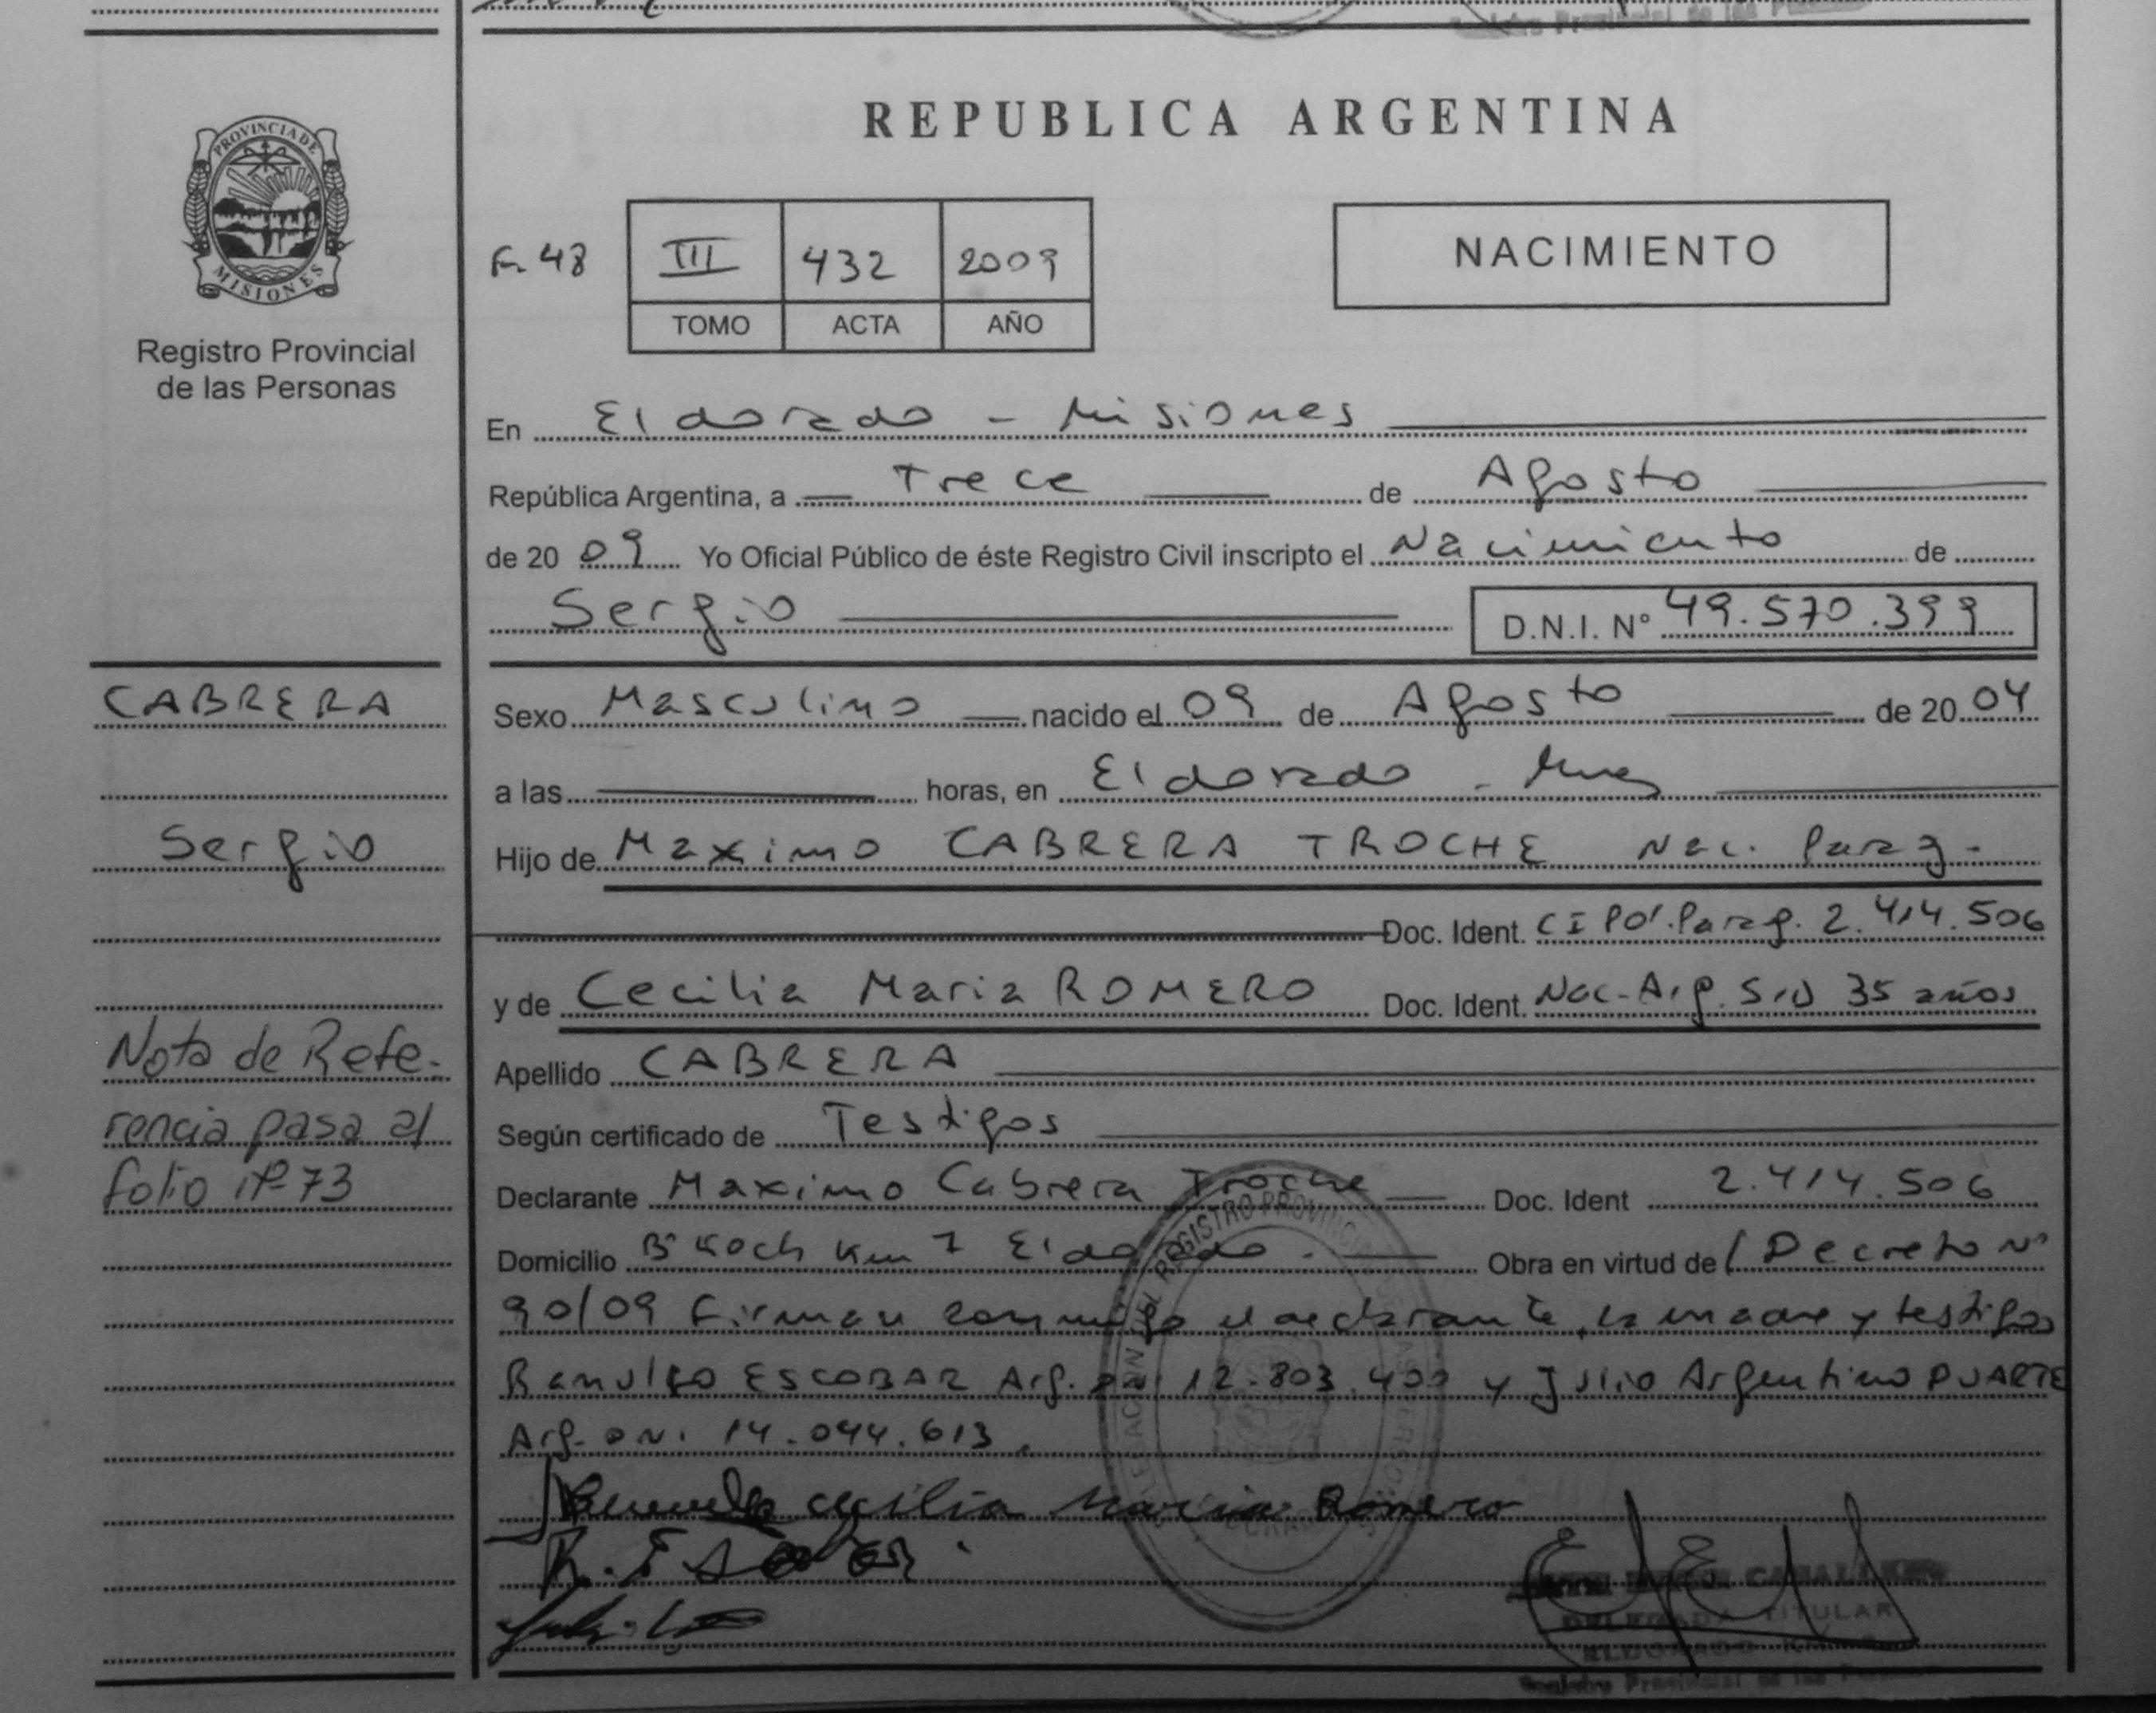 REPUBLICA ARGENTINA
PROVINCIA DE
MISIONES
Registro Provincial
de las Personas
F. 48
III 432 2009
TOMO ACTA AÑO
NACIMIENTO
En Eldorado - Misiones
República Argentina, a Trece de Agosto
de 20 09 Yo Oficial Público de éste Registro Civil inscripto el Nacimiento de
Sergio D.N.I. Nº 49.570.399
CABRERA
Sergio
Nota de Refe-
rencia pasa al
folio nº 73
Sexo Masculino nacido el 09 de Agosto de 20 04
a las horas, en Eldorado - Mnes
Hijo de Maximo CABRERA TROCHE Nac. Parag.
Doc. Ident. CI Pol. Parag. 2.414.506
y de Cecilia Maria ROMERO Doc. Ident. Nac. Arg. S/D 35 años
Apellido CABRERA
Según certificado de Testigos
Declarante Maximo Cabrera Troche Doc. Ident 2.414.506
Domicilio Bº Koch Km 7 Eldorado. Obra en virtud de / Decreto Nº
90/09 Firman conmigo el declarante, la madre y testigos
Ranulfo ESCOBAR Arg. DNI 12.803.400 y Julio Argentino DUARTE
Arg. DNI 14.044.613.
Cecilia Maria Romero
R. Escobar
DELEGADA TITULAR
ELDORADO
Registro Provincial de las